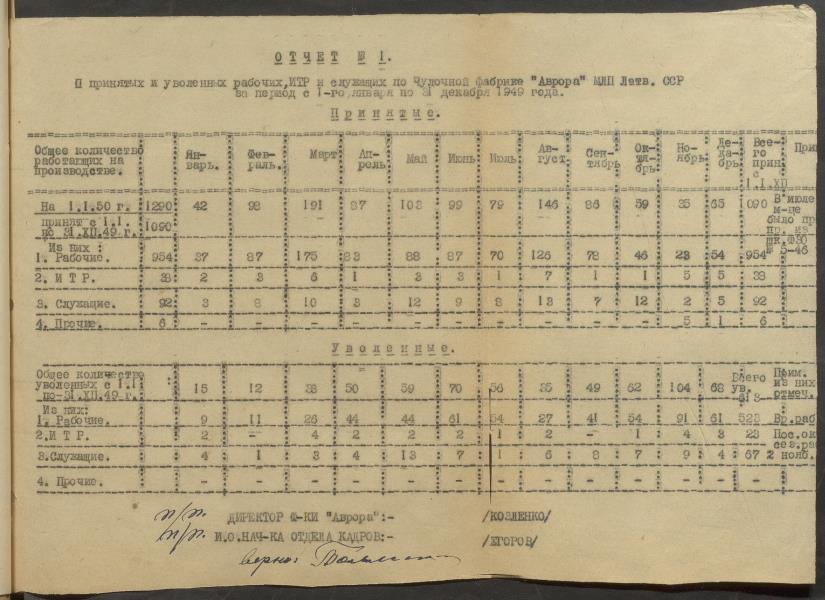 ОТЧЕТ № 1.
О принятых и уволенных рабочих, ИТР и служащих по Чулочной фабрике "Аврора" МЛП Латв. ССР
за период с 1-го января по 31 декабря 1949 года.
Принятые.
Общее количество работающих на производстве. Январь. Февраль. Март Апрель. Май Июнь Июль Август. Сентябрь Октябрь Ноябрь Декабрь Всего прин. с 1.1.XII
На 1.1.50 г. 1290 42 98 191 87 103 99 79 146 86 59 35 65 1090 В июле
принят с 1.1. по 31.XII.49 г. 1090 м-це было пр
Из них :
1. Рабочие. 954 37 87 175 83 88 87 70 126 78 46 23 54 954
2. И Т Р. 38 2 3 6 1 3 3 1 7 1 1 5 5 38
3. Служащие. 92 3 8 10 3 12 9 8 13 7 12 2 5 92
4. Прочие. 6 - - - - - - - - - - 5 1 6
Уволенные.
Общее количество уволенных с 1.1. по-31.XII.49 г. 15 12 33 50 59 70 56 35 49 62 104 68 Всего ув. 613 Прим. из них отмеч.
Из них:
1. Рабочие. 9 11 26 44 44 61 54 27 41 54 91 61 523 Вр.раб
2.И Т Р. 2 - 4 2 2 2 1 2 - 1 4 3 23 Пос.ок
3.Служащие. 4 1 3 4 13 7 1 6 8 7 9 4 67 2 нояб.
4. Прочие. - - - - - - - - - - - - -
п/п. ДИРЕКТОР Ф-КИ "Аврора":- /КОЗЛЕНКО/
п/п. И.О.НАЧ-КА ОТДЕЛА КАДРОВ:- /ЕГОРОВ/
верно: